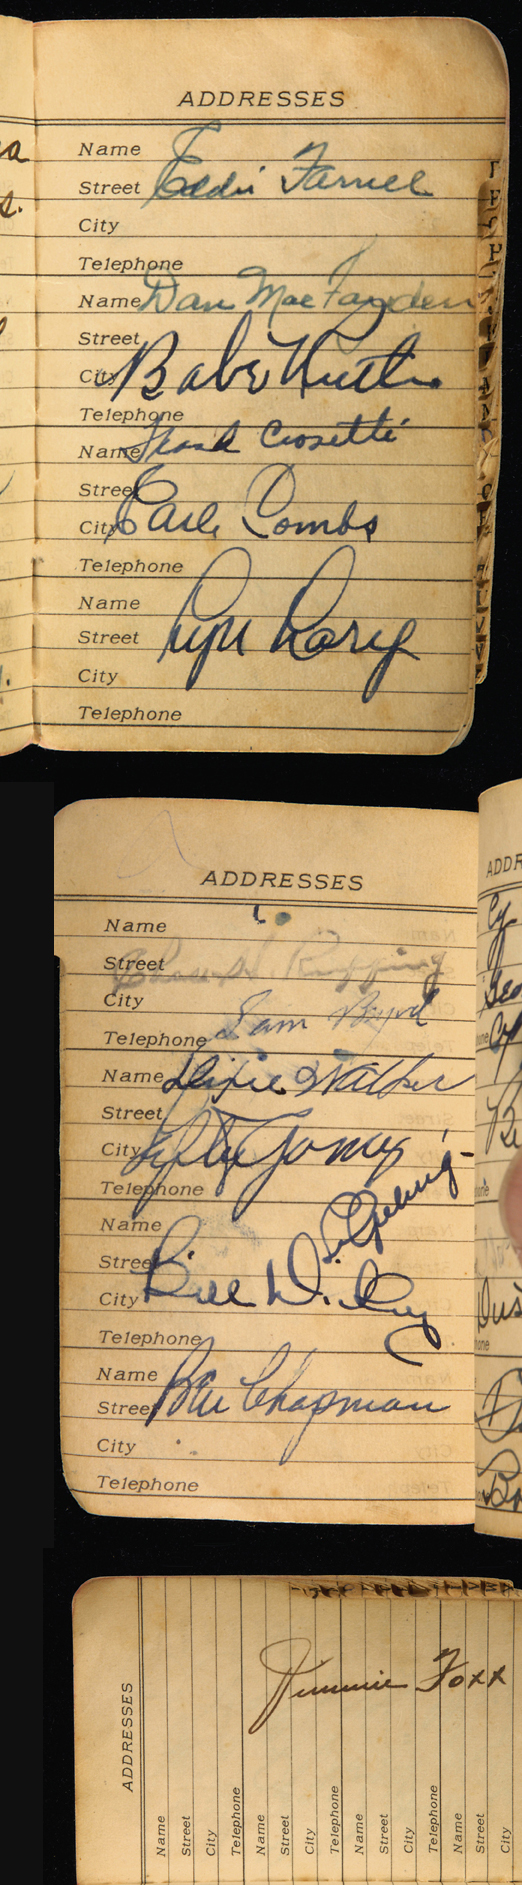 ADDRESSES
Name
Street Eddie Farrell
City
Telephone
Name Dan MacFayden
Street
City Babe Ruth
Telephone
Name Frank Crosetti
Street
City Earle Combs
Telephone
Name
Street Lyn Lary
City
Telephone
ADDRESSES
Name
Street Chas. H. Ruffing
City
Telephone Sam Byrd
Name Dixie Walker
Street
City Lefty Gomez
Telephone
Name L. Gehrig
Street
City Bill Dickey
Telephone
Name
Street Ben Chapman
City
Telephone
ADDR
Cy
ADDRESSES
Jimmie Foxx
Name
Street
City
Telephone
Name
Street
City
Telephone
Name
Street
City
Telephone
Name
Street
City